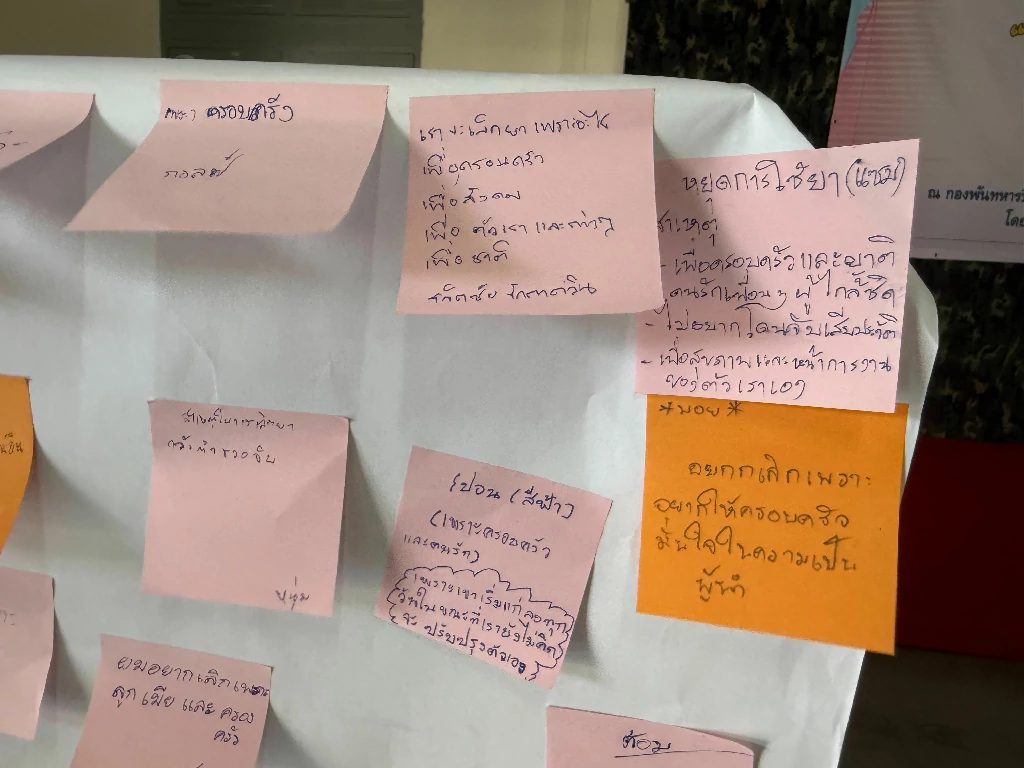 เพราะ ครอบครัว
เราจะเลิกยาเพราะอะไร
เพื่อครอบครัว
เพื่อสังคม
เพื่อ ตัวเรา และ
เพื่อ ชาติ
หยุดการใช้ยา (แซม)
สาเหตุ
- เพื่อครอบครัวและญาติ
คนรักเพื่อนๆ ผู้ใกล้ชิด
- ไม่อยากโดนจับเสียประวัติ
- เพื่อสุขภาพและหน้าการงาน
ของตัวเราเอง
ณ กองพันทหาร
โดย
*บอย*
อยากเลิกเพราะ
อยากให้ครอบครัว
มั่นใจในความเป็น
ผู้นำ
หนุ่ม
ปอน (สีฟ้า)
(เพราะครอบครัว
และคนรัก)
เพราะเขาเริ่มแก่ลงทุก
วันในขณะที่เรายังไม่คิด
จะ ปรับปรุงตัวเอง
ผมอยากเลิกเพราะ
ลูก เมีย และ ครอบ
ครัว
ต้อม